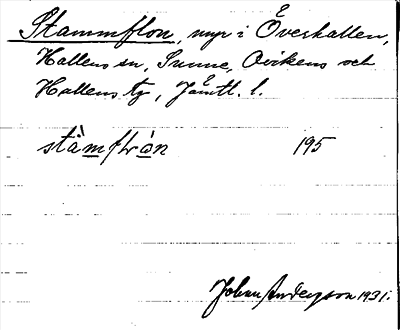 Stammflon, myr i Överhallen,
Hallens sn, Sunne, Ovikens och
Hallens tg, Jämtl. l.
stàmflròn 195
Johan Anderzson 1931.